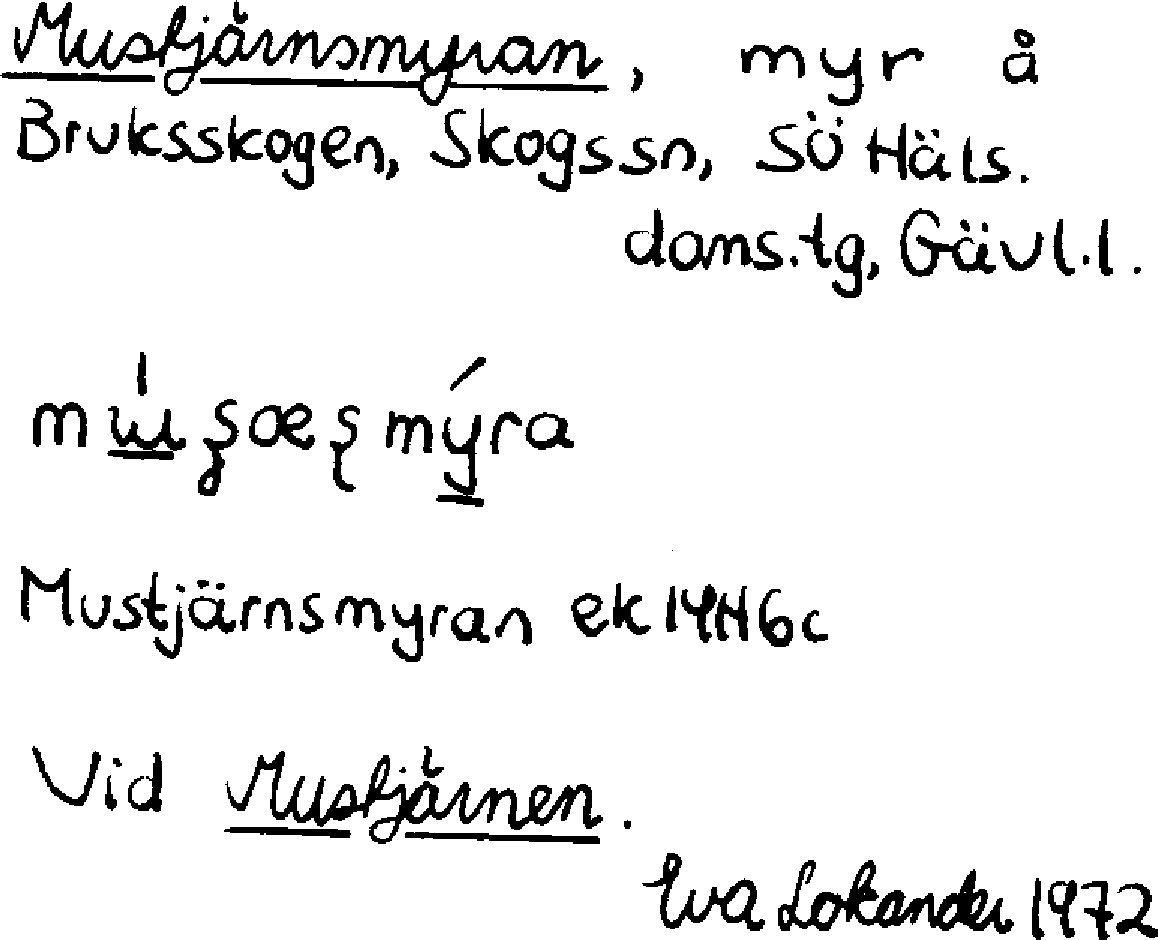 Mustjärnsmyran, myr å
Bruksskogen, Skogs sn, SÖ Häls.
doms.tg, Gävl.l.
Mustjärnsmyran ek 14H6c
Vid Mustjärnen.
Eva Lokander 1972